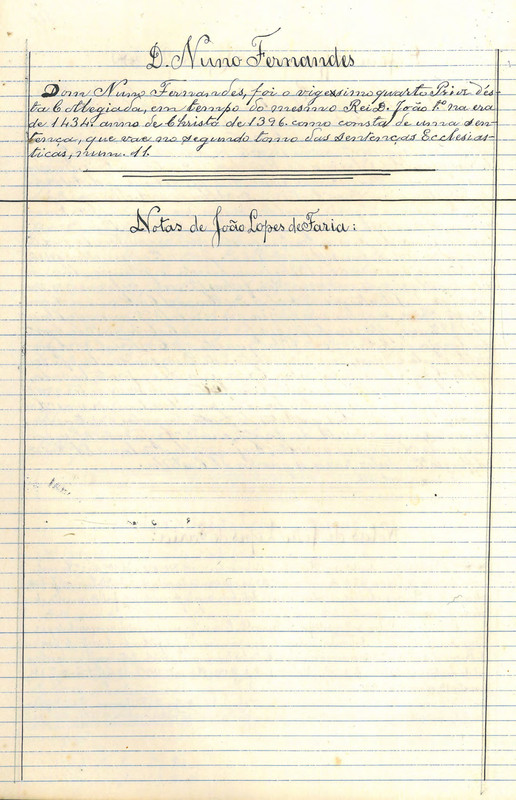 D. Nuno Fernandes
Dom Nuno Fernandes, foi o vigessimo quarto Prior dés-
ta Collegiada, em tempo do mesmo Rei D. João 1º na era
de 1434 anno de Christo de 1396 como consta de uma sen-
tença, que vae no segundo tomo das sentenças Ecclesias-
ticas, num. 11.
Notas de João Lopes de Faria: